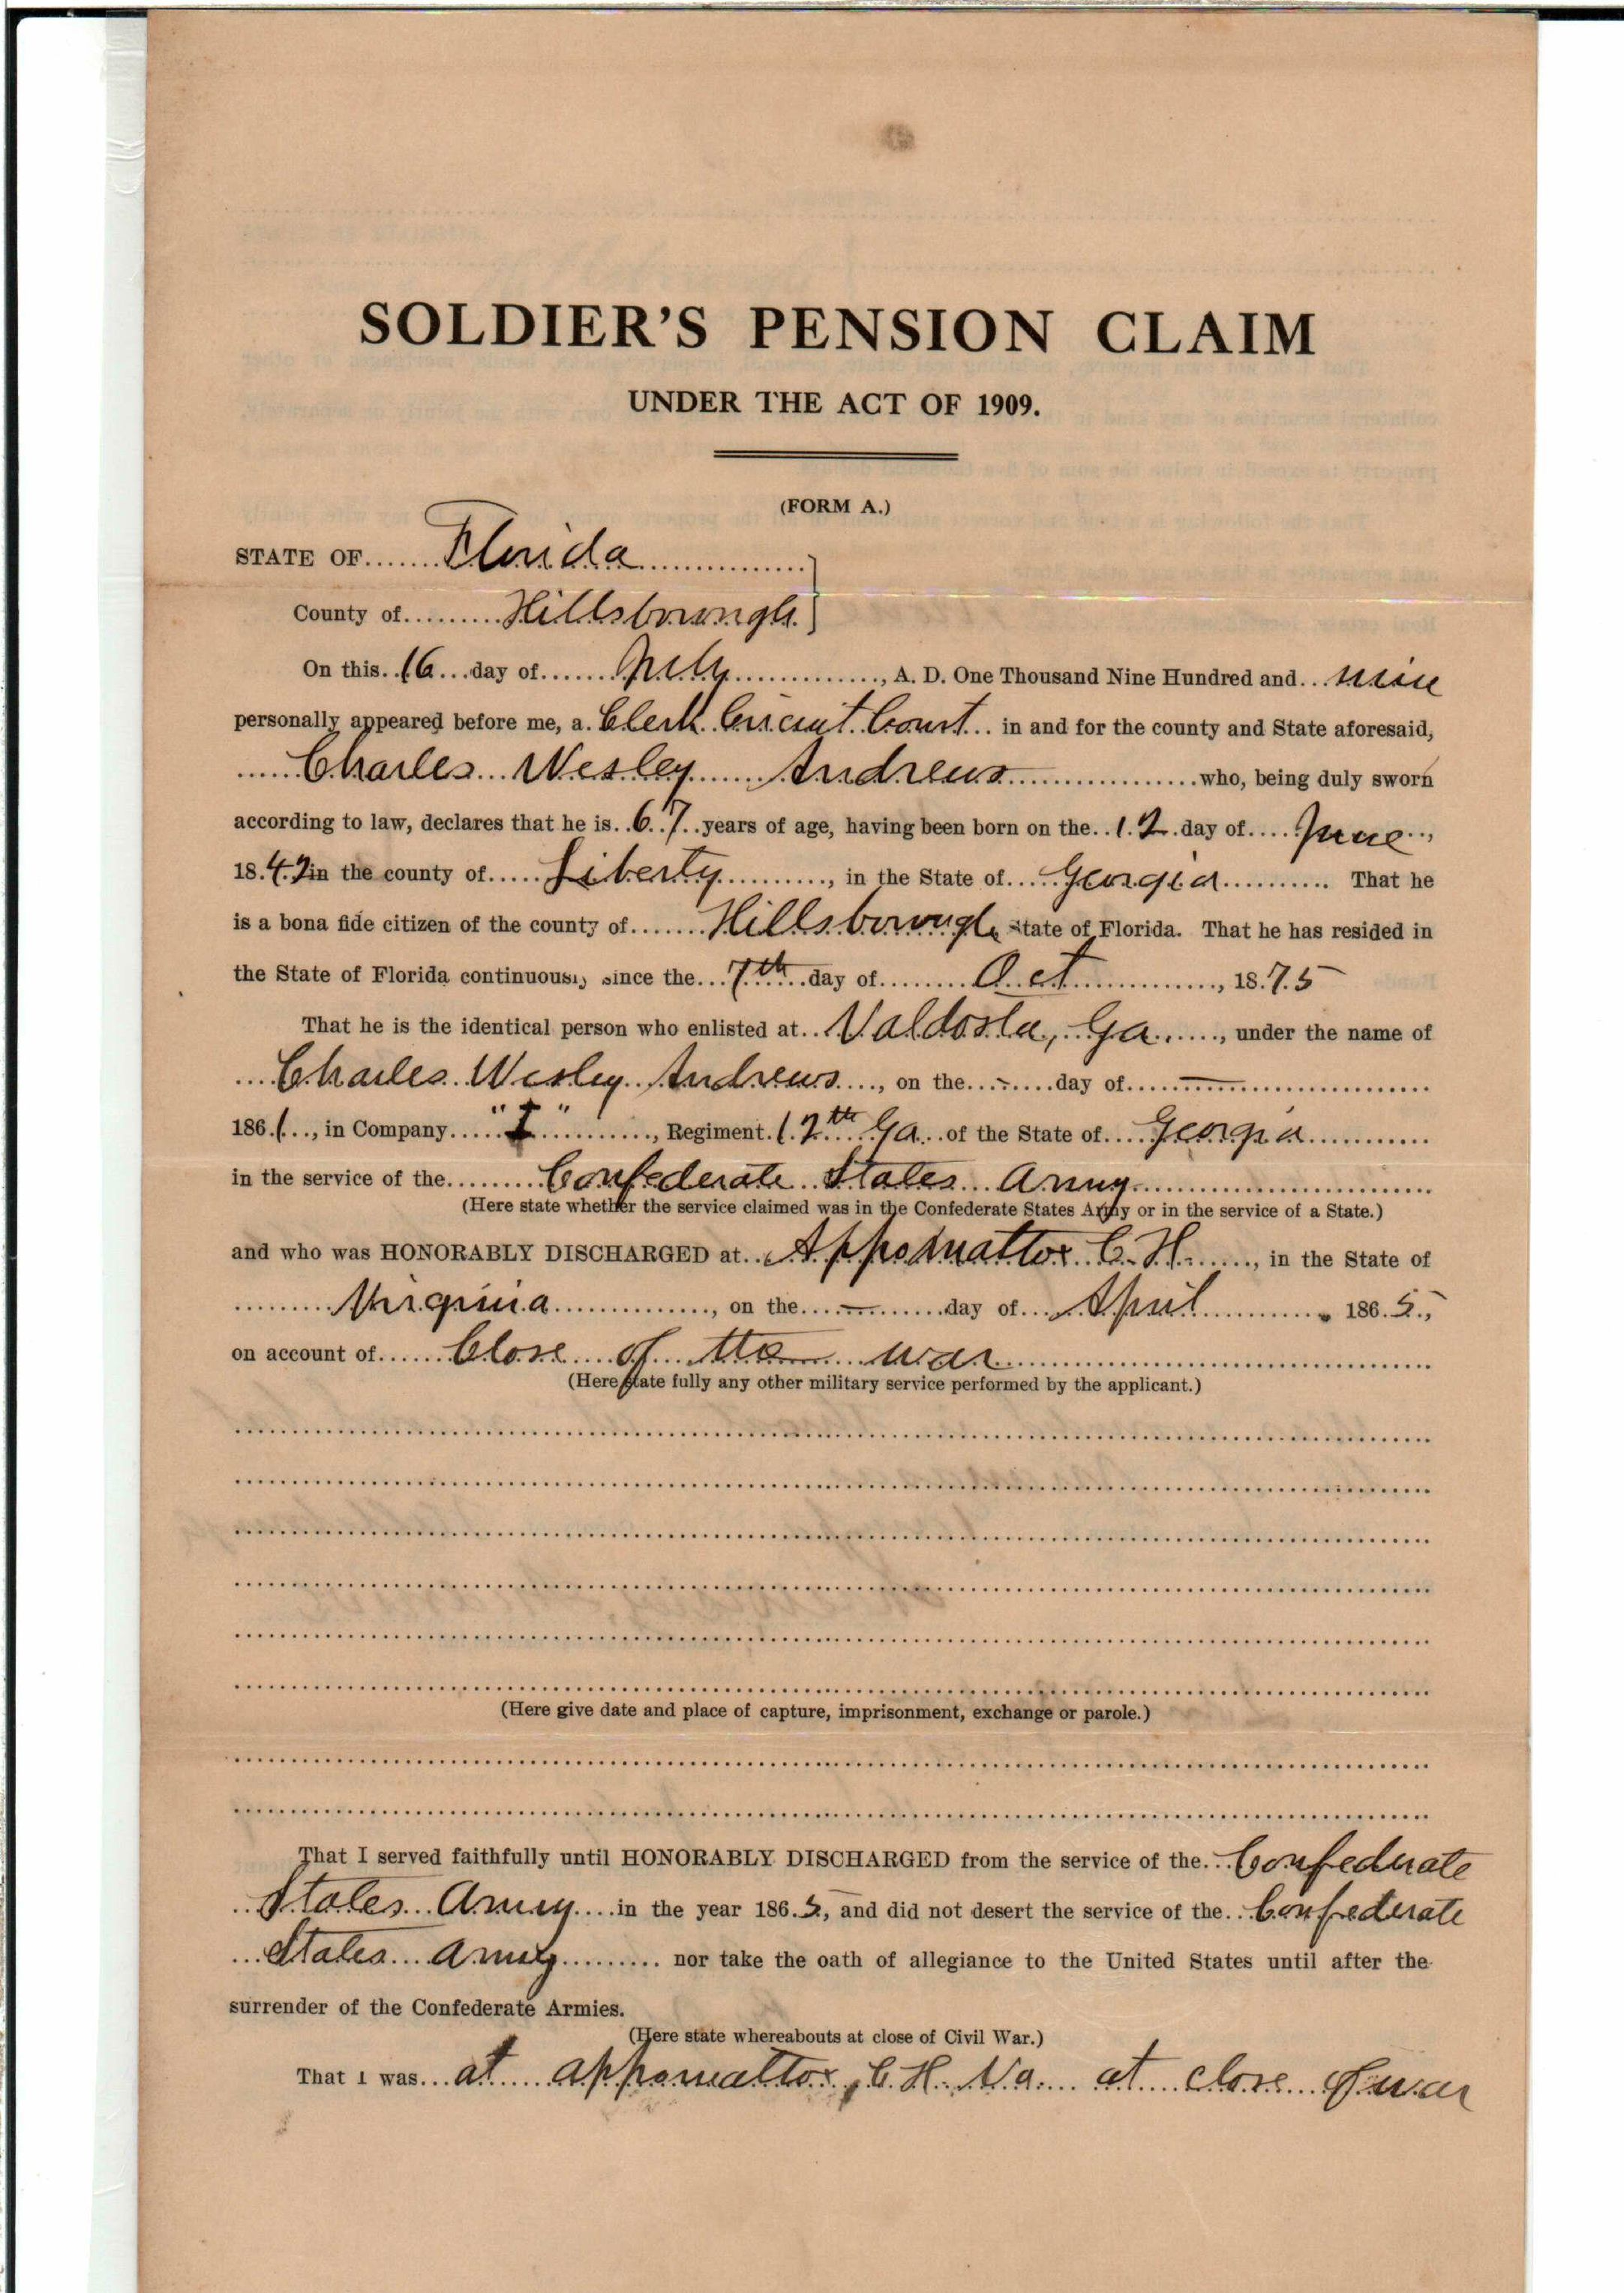 SOLDIER'S PENSION CLAIM
UNDER THE ACT OF 1909.
(FORM A.)
STATE OF Florida
County of Hillsborough
On this 16 day of July, A. D. One Thousand Nine Hundred and nine
personally appeared before me, a Clerk Circuit Court in and for the county and State aforesaid,
Charles Wesley Andrews who, being duly sworn
according to law, declares that he is 67 years of age, having been born on the 12 day of June,
1842 in the county of Liberty, in the State of Georgia. That he
is a bona fide citizen of the county of Hillsborough State of Florida. That he has resided in
the State of Florida continuously since the 7th day of Oct, 1875
That he is the identical person who enlisted at Valdosta, Ga., under the name of
Charles Wesley Andrews, on the - day of -
1861, in Company "I", Regiment 12th Ga of the State of Georgia
in the service of the Confederate States Army
(Here state whether the service claimed was in the Confederate States Army or in the service of a State.)
and who was HONORABLY DISCHARGED at Appomattox C. H., in the State of
Virginia, on the - day of April 1865,
on account of Close of the war
(Here state fully any other military service performed by the applicant.)
(Here give date and place of capture, imprisonment, exchange or parole.)
That I served faithfully until HONORABLY DISCHARGED from the service of the Confederate
States Army in the year 1865, and did not desert the service of the Confederate
States Army nor take the oath of allegiance to the United States until after the
surrender of the Confederate Armies.
(Here state whereabouts at close of Civil War.)
That I was at appomattox, C. H. Va. at close of war